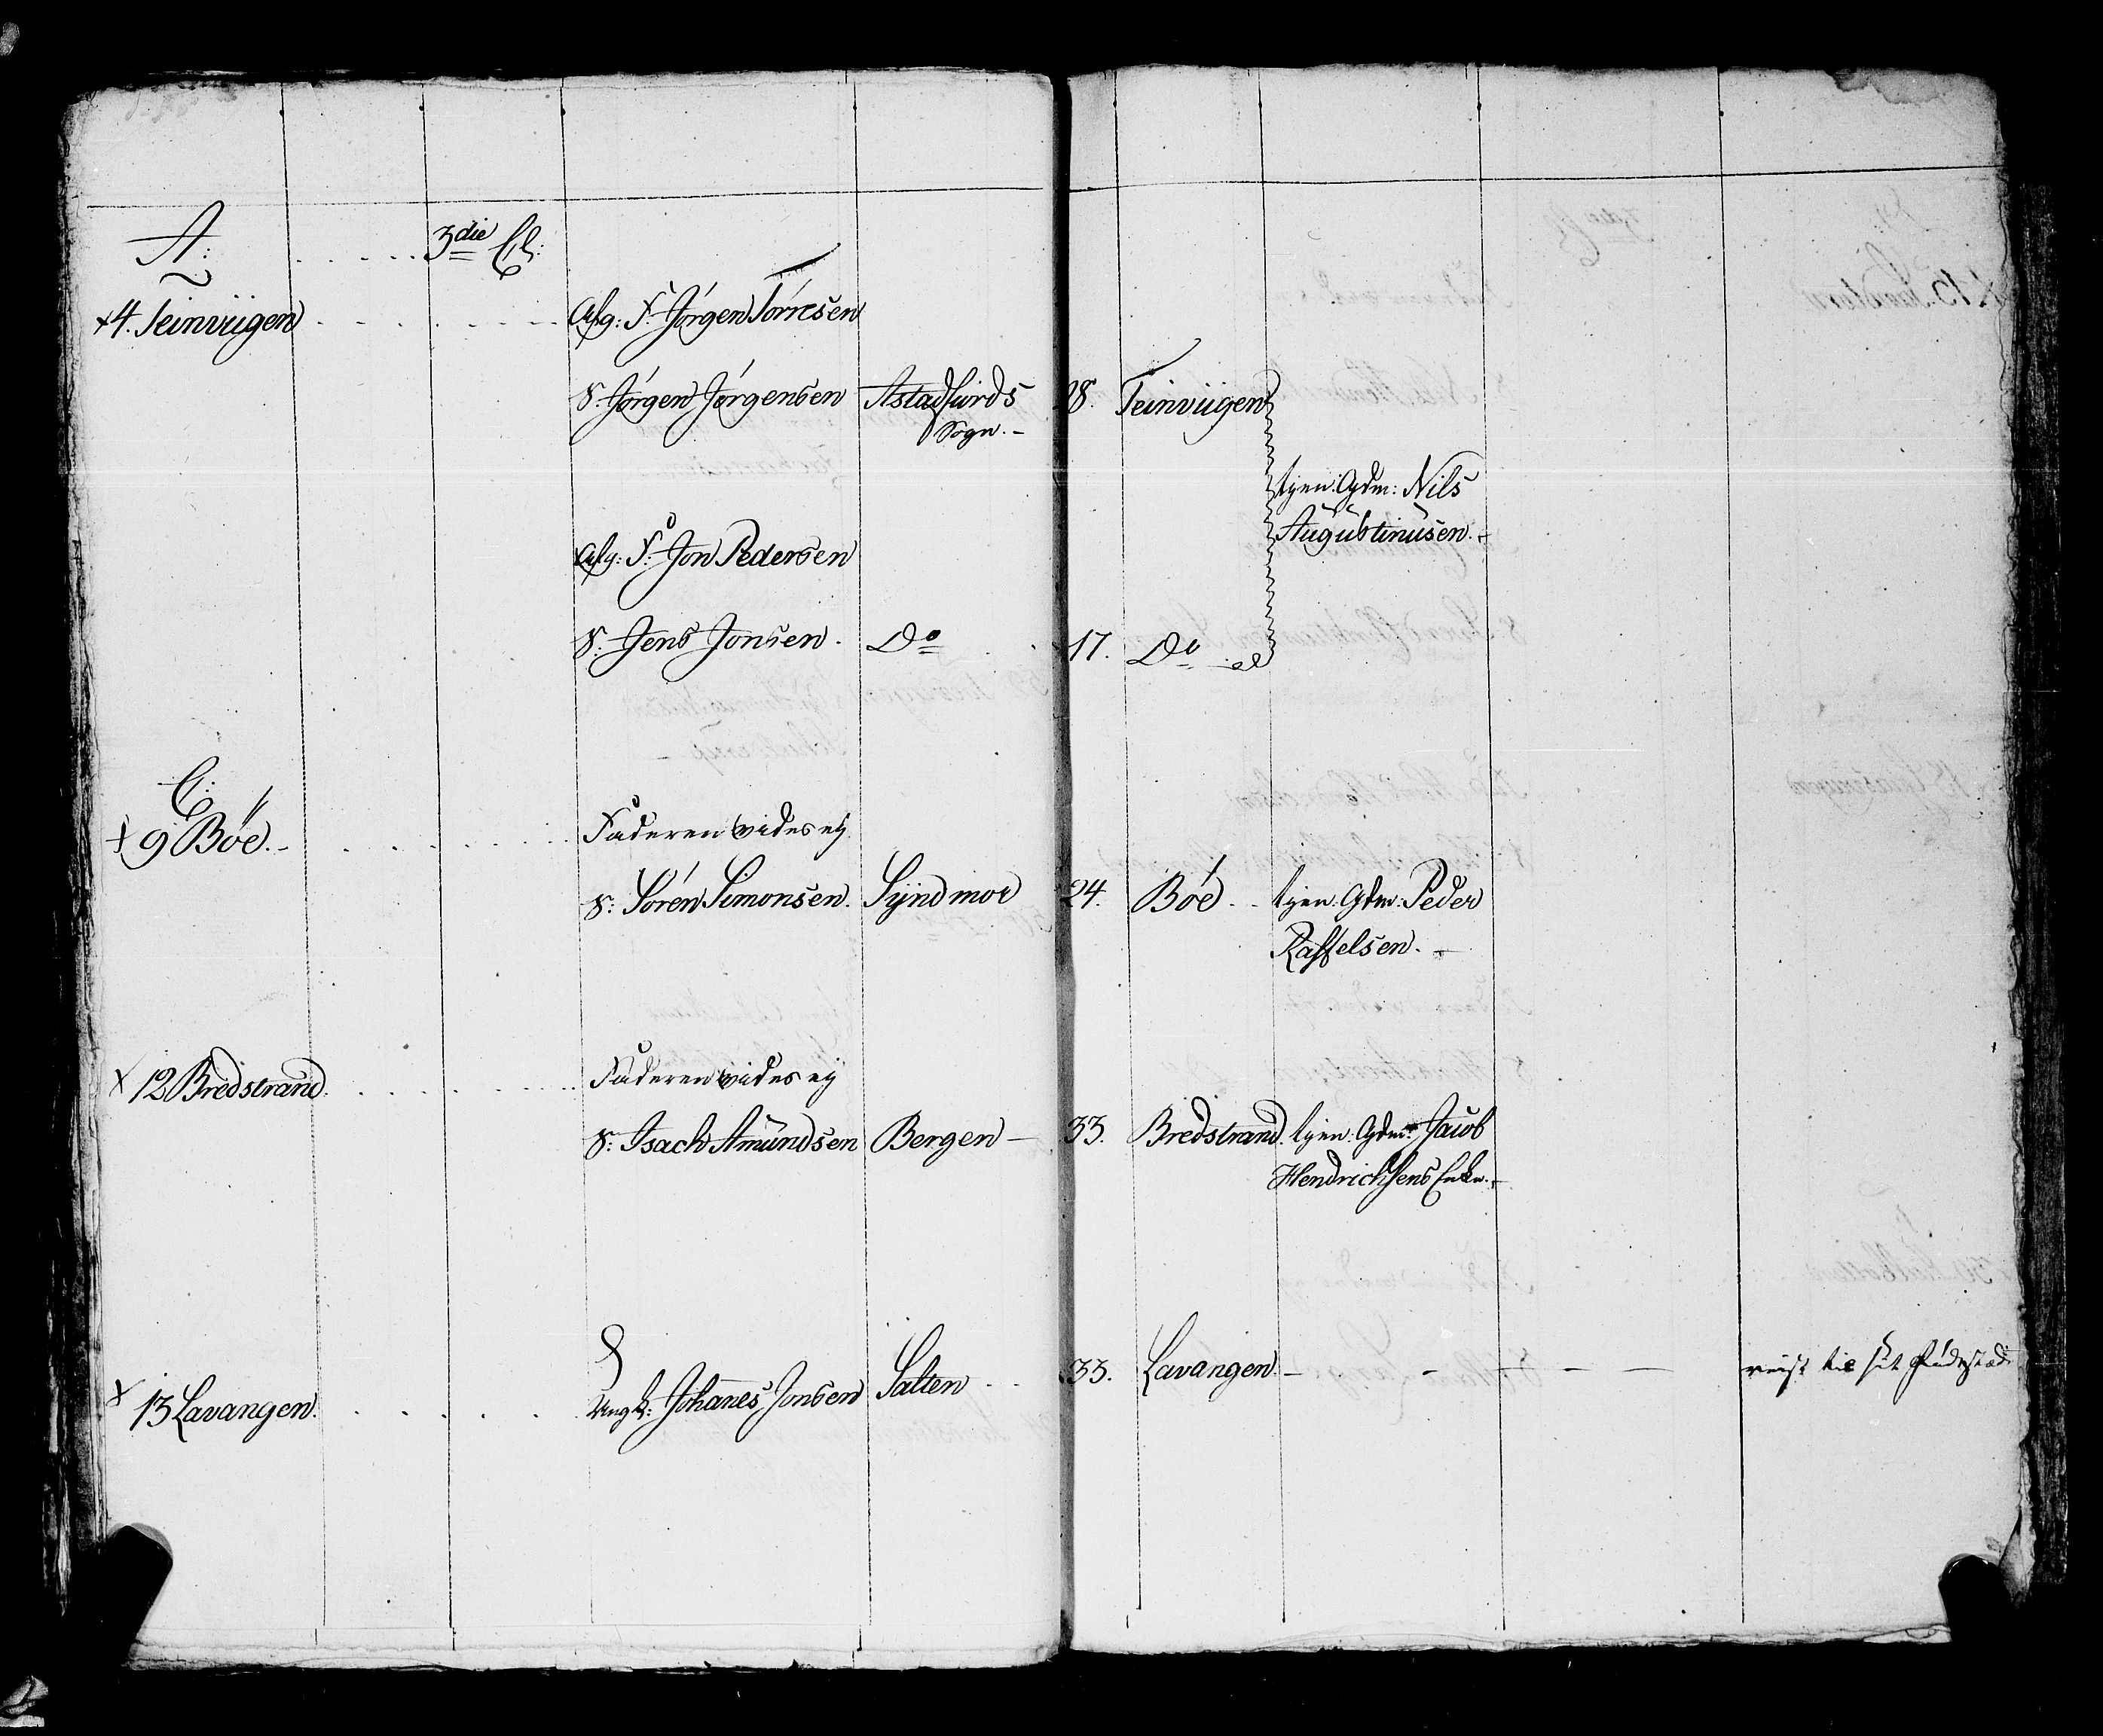 A: . . . . . 3die Cl:
x 4. Teinviigen . . . . . . Afg: F: Jørgen Tørresen
S: Jørgen Jørgensen Astadfiords 28. Teinviigen
Sogn. -
tjen: Gdm: Nils
Augustinusen. -
Afg: F: Jon Pedersen
S: Jens Jonsen. Do 17. Do
C:
x 9 Bøe. - . . . . . . Faderen vides ej
S: Søren Simonsen. Syndmør 24. Bøe. tjen: Gdm: Peder
Raffelsen. -
x 12 Bredstrand. . . . . . . Faderen vides ej
S: Isach Amundsen Bergen - 33. Bredstrand. tjen: Gdm: Jacob
Hendrichsens Enke. -
x 13 Lavangen. . . . . . Ungk: Johanes Jonsen Salten . . 33. Lavangen. - - - - - reist til sit Fødested